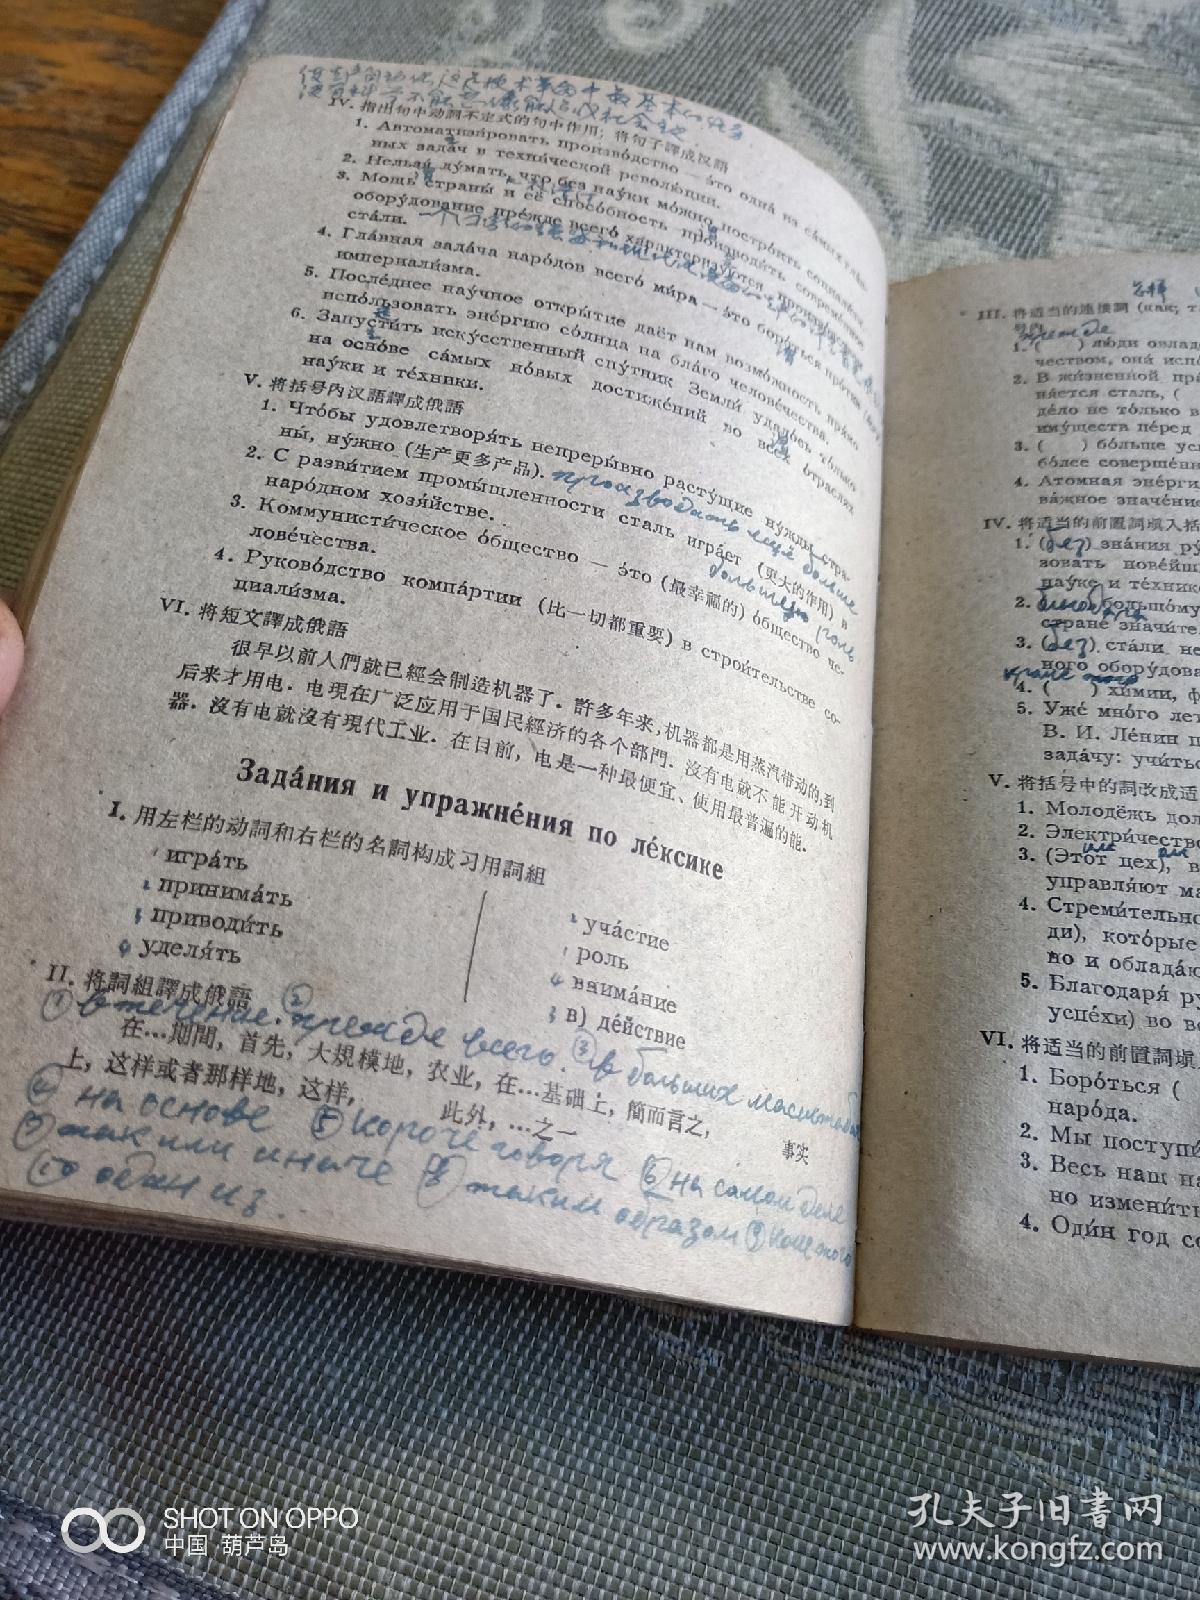 IV. 指出句中动詞不定式的句中作用; 将句子譯成汉語
1. Автоматизи́ровать произво́дство — э́то одна́ из са́мых гла́в-
ных зада́ч в техни́ческой револю́ции.
2. Нельзя́ ду́мать, что без нау́ки мо́жно постро́ить социали́зм.
3. Мощь страны́ и её спосо́бность производи́ть совреме́нное
обору́дование пре́жде всего́ характеризу́ются произво́дством
ста́ли.
4. Гла́вная зада́ча наро́дов всего́ ми́ра — э́то боро́ться про́тив
империали́зма.
5. После́днее нау́чное откры́тие даёт нам возмо́жность
испо́льзовать эне́ргию со́лнца на бла́го челове́чества.
6. Запусти́ть иску́сственный спу́тник Земли́ удало́сь то́лько
на осно́ве са́мых но́вых достиже́ний во всех отрасля́х
нау́ки и те́хники.
V. 将括号內汉語譯成俄語
1. Что́бы удовлетворя́ть непреры́вно расту́щие ну́жды стра-
ны́, ну́жно (生产更多产品). производить ещё больше
2. С разви́тием промы́шленности сталь игра́ет (更大的作用) в
наро́дном хозя́йстве. большую роль
3. Коммунисти́ческое о́бщество — э́то (最幸福的) о́бщество че-
лове́чества.
4. Руково́дство компа́ртии (比一切都重要) в строи́тельстве со-
циали́зма.
VI. 将短文譯成俄語
很早以前人們就已經会制造机器了. 許多年来, 机器都是用蒸汽带动的, 到
后来才用电. 电現在广泛应用于国民經济的各个部門. 沒有电就不能开动机
器. 沒有电就沒有現代工业. 在目前, 电是一种最便宜、使用最普遍的能.
Зада́ния и упражне́ния по ле́ксике
I. 用左栏的动詞和右栏的名詞构成习用詞組
1 игра́ть
2 принима́ть
3 приводи́ть
4 уделя́ть
2 уча́стие
1 роль
4 внима́ние
3 в) де́йствие
II. 将詞組譯成俄語
① в течение. ② прежде всего. ③ в больших масштабах
在…期間, 首先, 大規模地, 农业, 在…基础上, 簡而言之, 事实
上, 这样或者那样地, 这样, 此外, …之一
④ на основе ⑤ короче говоря ⑥ на самом деле
⑦ так или иначе ⑧ таким образом ⑨ кроме того
⑩ один из...
III. 将适当的連接詞 (как, т
号內
прежде
1. ( ) лю́ди овлад
чеством, она́ исп
2. В жи́зненной пра
на́ется сталь, (
де́ло не то́лько в
иму́ществ пе́ред
3. ( ) бо́льше ус
бо́лее соверше́нн
4. А́томная эне́рги
ва́жное значе́ни
IV. 将适当的前置詞填入括
1. (без) зна́ния ру
зовать нове́йш
нау́ке и те́хник
2. большо́му
стране́ значи́те
3. (без) ста́ли не
ного обору́дова
кроме того
4. ( ) хи́мии, ф
5. Уже́ мно́го лет
В. И. Ле́нин п
зада́чу: учи́тьс
V. 将括号中的詞改成适
1. Молодёжь дол
2. Электри́чество
3. (Э́тот цех), в
управля́ют ма
4. Стреми́тельно
ди), кото́рые
но и облада́ю
5. Благодаря́ ру
успе́хи) во вс
VI. 将适当的前置詞填入
1. Боро́ться (
наро́да.
2. Мы поступи́
3. Весь наш на
но измени́ть
4. Оди́н год со
SHOT ON OPPO
中国 葫芦岛
孔夫子旧書网
www.kongfz.com